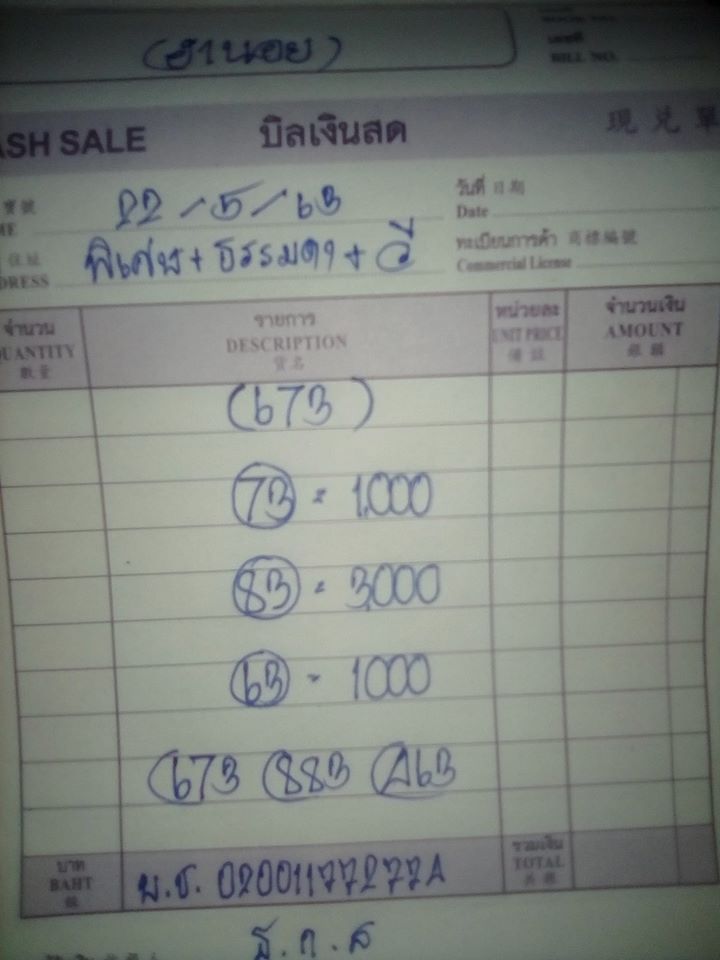 (ฮานอย)
เลขที่
BILL NO.
ASH SALE บิลเงินสด 現 兌 單
22/5/63
วันที่ 日期
Date
ME
พิเศษ + ธรรมดา + วี
ทะเบียนการค้า 商標編號
Commercial License
DRESS
จำนวน รายการ หน่วยละ จำนวนเงิน
QUANTITY DESCRIPTION UNIT PRICE AMOUNT
數量 貨名 備註 銀額
(673)
73 = 1,000
83 = 3,000
63 = 1000
673 883 463
บาท รวมเงิน
BAHT TOTAL
พ.ช. 020011772774
ธ.ก.ส